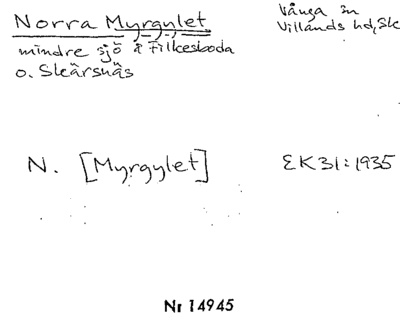 Norra Myrgylet
Vånga sn
Villands hd, Sk
mindre sjö å Filkesboda
o. Skärsnäs
N. [Myrgylet]
EK31:1935
Nr 14945